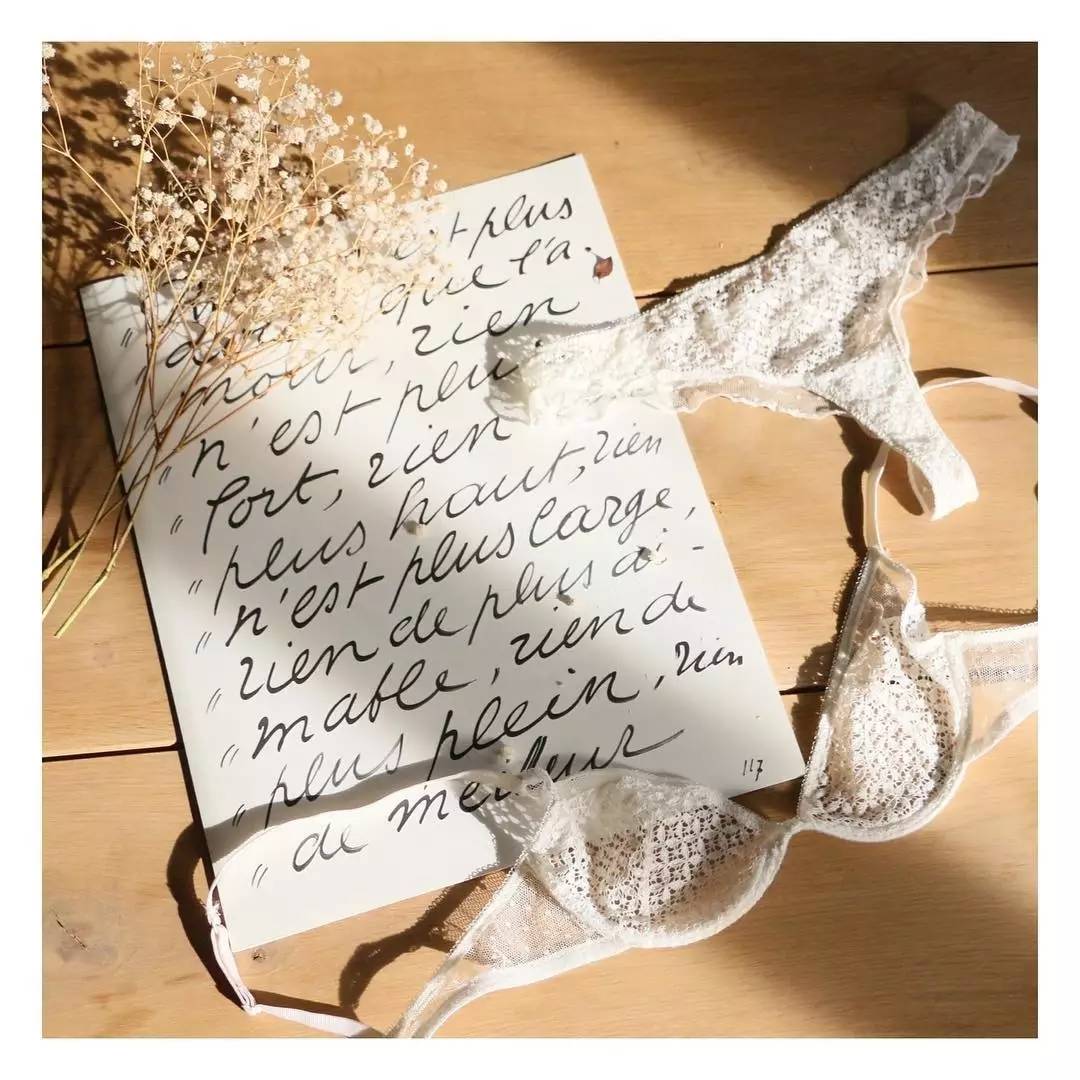 est plus
" que l'a-
" mour, rien
" n'est plus
" fort, rien
" plus haut, rien
" n'est plus large,
" rien de plus ai-
" mable, rien de
" plus plein, rien
" de meilleur
117